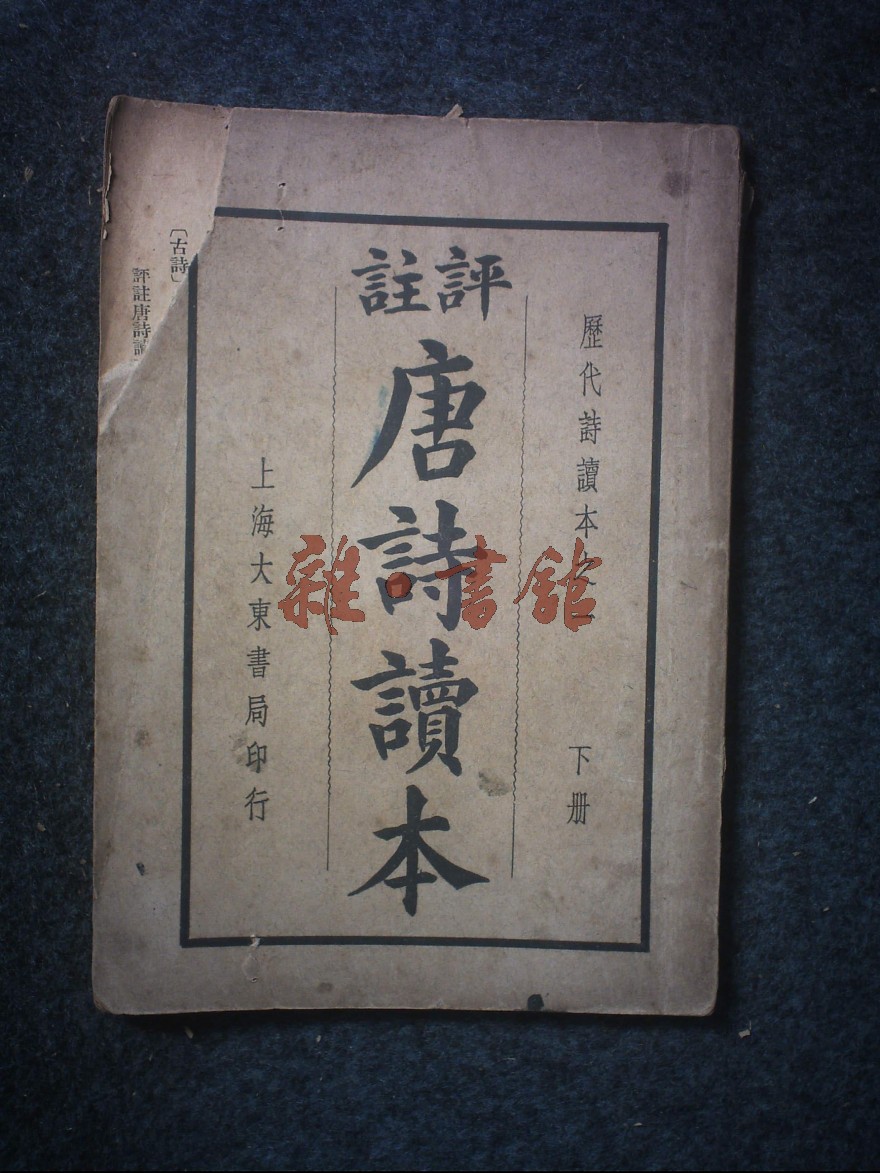 歷代詩讀本之一
下册
評註
唐詩讀本
上海大東書局印行
〔古詩〕
評註唐詩讀
雜·書館